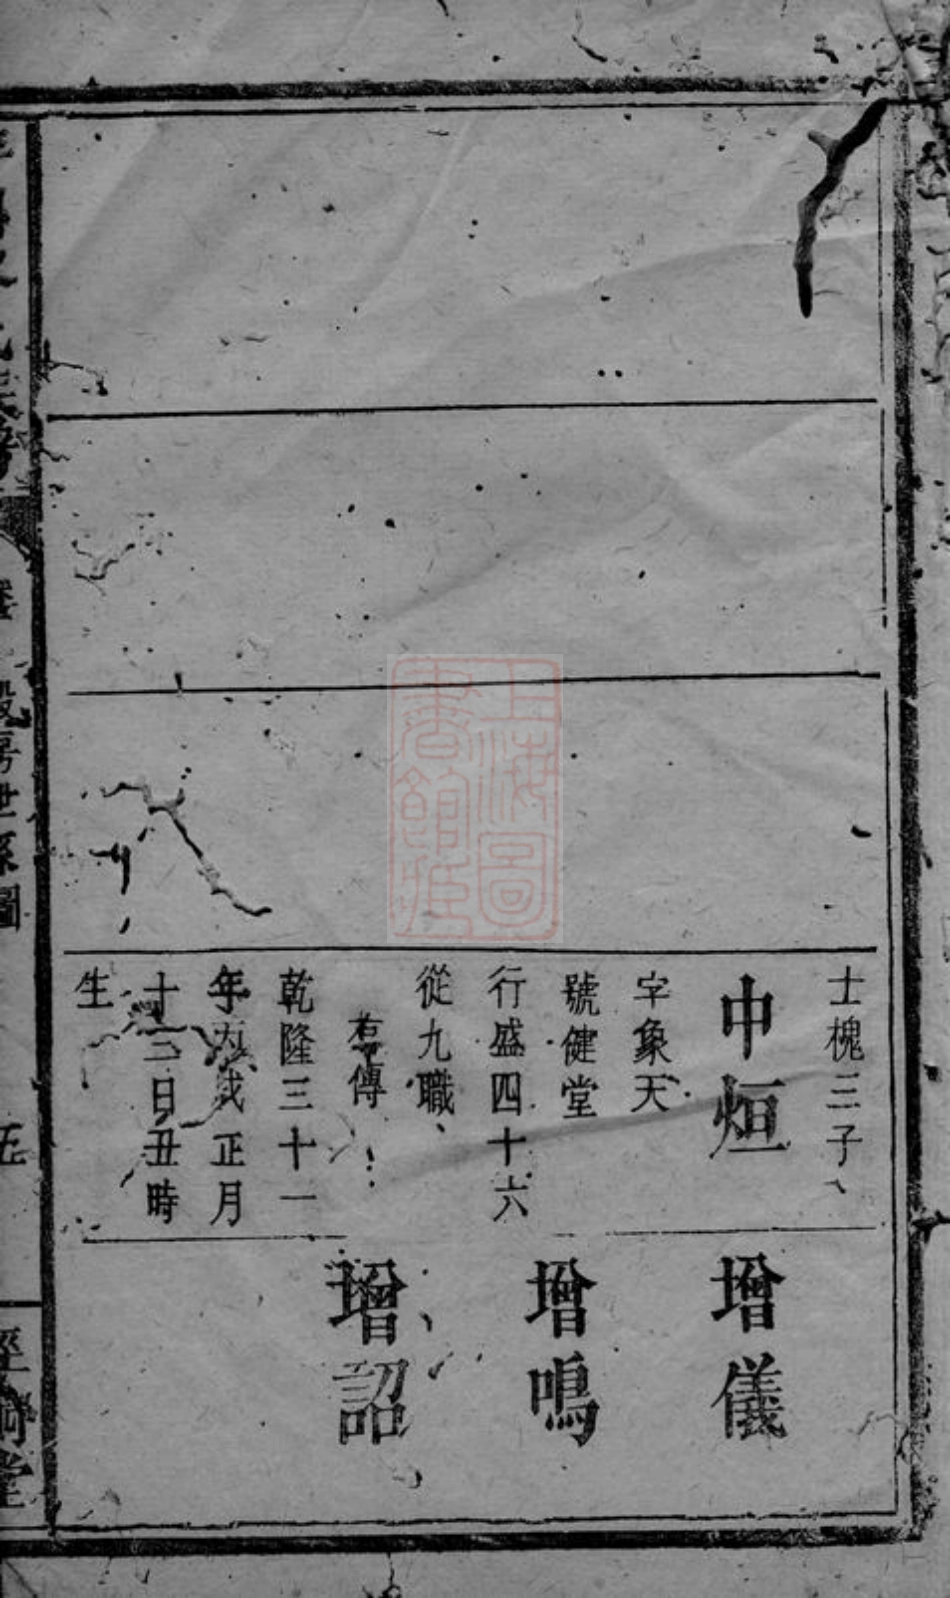 士槐三子
中烜
字象天
號健堂
行盛四十六
從九職
有傳
乾隆三十一
年丙戌正月
十二日丑時
生
增儀
增鳴
增詔
房世系圖
五
堂
上海圖書館藏